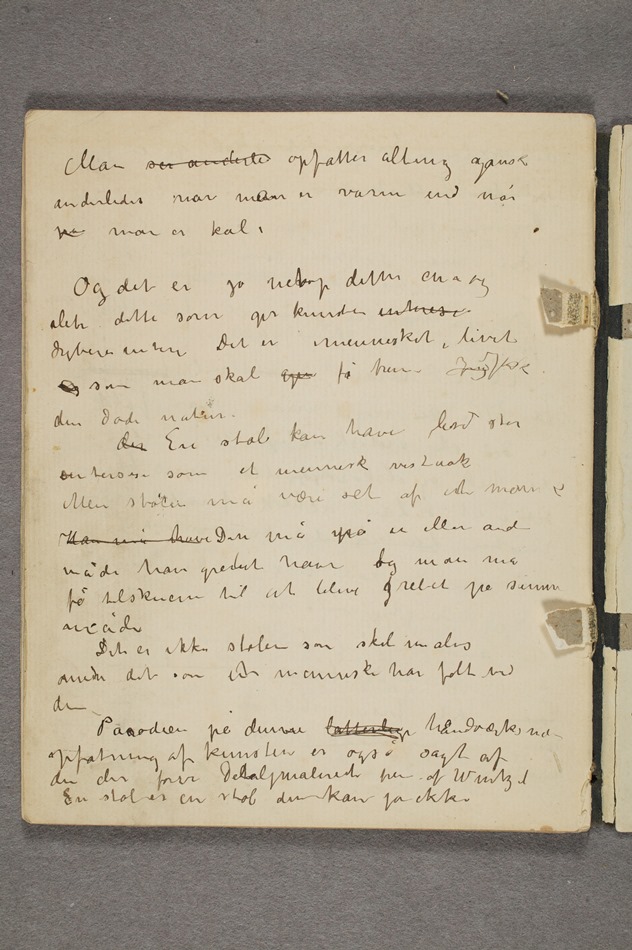 Man ser anderledes opfatter alting ganske
anderledes når man er varm end når
man er kold
Og det er jo netop dette ene og
alene dette som gir kunsten interesse
dybere mening Det er mennesket, livet
Og som man skal få frem Ikke
den døde natur.
der En stol kan have ligeså stor
interesse som et menneske
Men stolen må være set af et menneske
Man må have Den må på en eller anden
måde han grebet ham Og man må
få tilskueren til at blive grebet på samme
måde
Det er ikke stolen som skal males
men det som et menneske har følt ved
den
Parodien på denne latterlige håndværksmæ
opfatning af kunsten er også sagt af
den der Detaljmalende af Wentzel
En stol er en stol den kan jo ikke